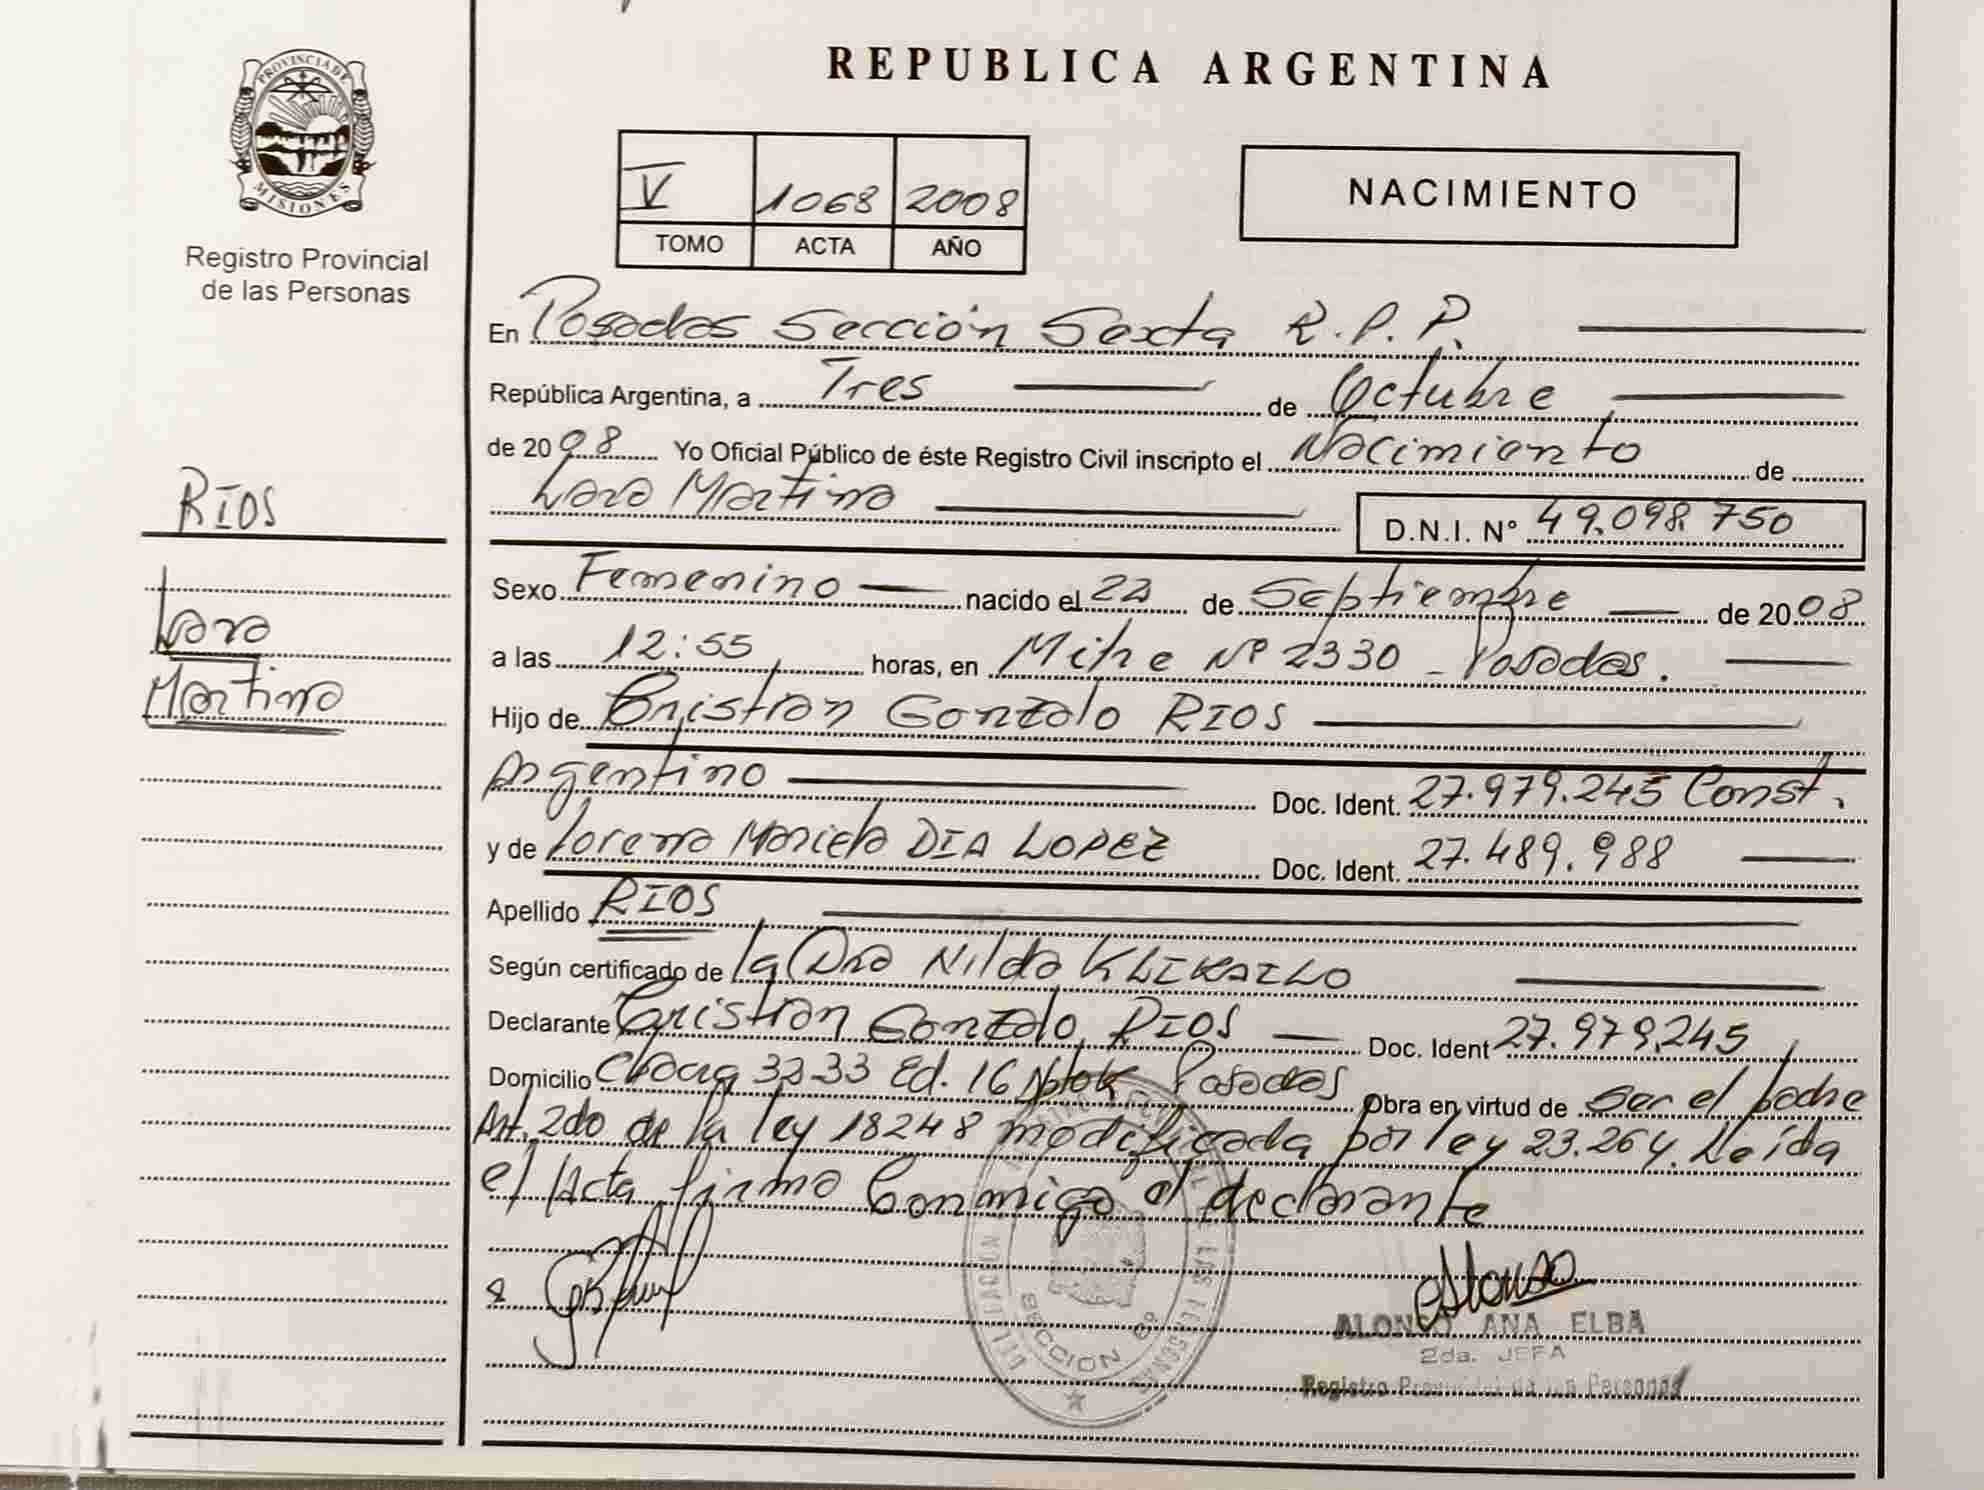 PROVINCIA DE
MISIONES
Registro Provincial
de las Personas
RIOS
Lara
Martina
REPUBLICA ARGENTINA
V 1068 2008
TOMO ACTA AÑO
NACIMIENTO
En Posadas Sección Sexta R.P.P.
República Argentina, a Tres de Octubre
de 2008 Yo Oficial Público de éste Registro Civil inscripto el Nacimiento de
Lara Martina D.N.I. N° 49.098.750
Sexo Femenino nacido el 22 de Septiembre de 2008
a las 12:55 horas, en Mitre Nº 2330 - Posadas.
Hijo de Cristian Gonzalo RIOS
Argentino Doc. Ident. 27.979.245 Const.
y de Lorena Mariela DIA LOPEZ Doc. Ident. 27.489.988
Apellido RIOS
Según certificado de la Dra Nilda
Declarante Cristian Gonzalo RIOS Doc. Ident 27.979.245
Domicilio 3233 Ed. 16 Posadas Obra en virtud de ser el padre
Art. 2do de la ley 18248 modificada por ley 23.264. Leída
el Acta firma Conmigo el declarante
SECCION 6º
ALONSO ANA ELBA
2da. JEFA
Registro Provincial de las Personas